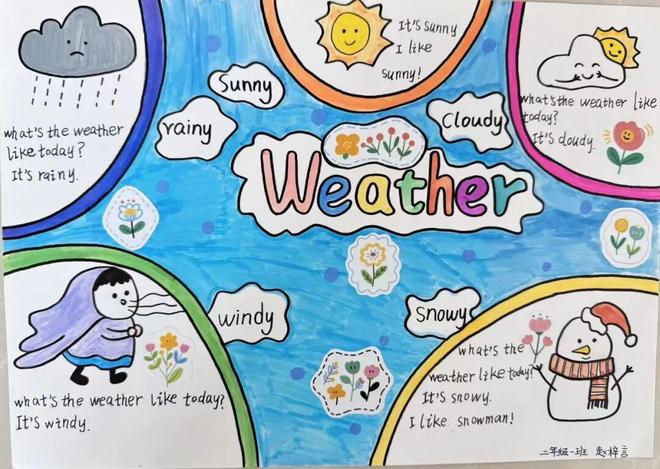 what's the weather
like today?
It's rainy.
It's sunny
I like
sunny!
what's the weather like
today?
It's cloudy.
sunny
rainy
Cloudy
Weather
windy
snowy
what's the weather like today?
It's windy.
what's the
weather like today?
It's snowy.
I like snowman!
二年级一班 赵梓言